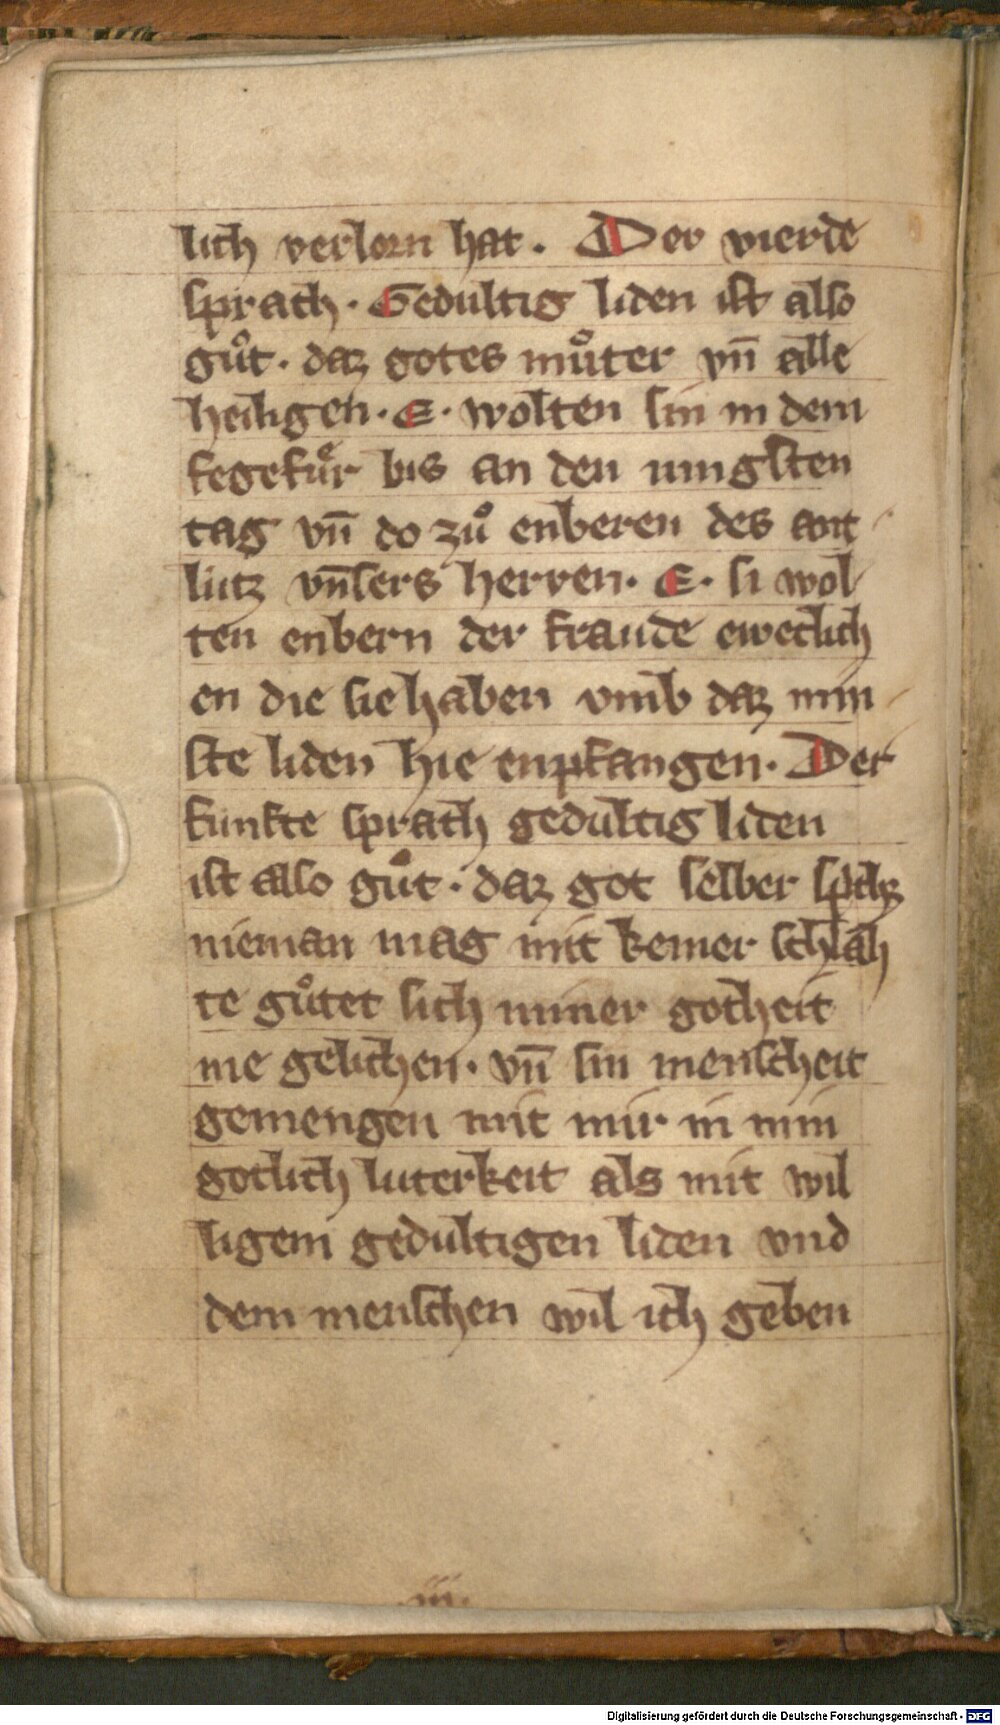 lich verlorn hat . Der vierde
sprach · Gedultig liden ist also
guͦt · daz gotes muͦter vn̄ alle
heiligen · E · wolten sin in dem
fegefuͤr bis an den iungsten
tag vn̄ do zuͦ enberen des ant
lütz vn̄sers herren · E · si wol
ten enbern der fraude eweclich
en die sie haben vmb daz min
ste liden hie enpfangen · Der
funfte sprach gedultig liden
ist also guͦt · daz got selber
nieman mag mit keiner schlah
te guͦtet sich miner gotheit
me gelichen · vn̄ sin menscheit
gemengen mit mir in min
gotlich luterkeit als mit wil
ligem gedultigen liden vnd
dem menschen wil ich geben
iii.
Digitalisierung gefördert durch die Deutsche Forschungsgemeinschaft - DFG